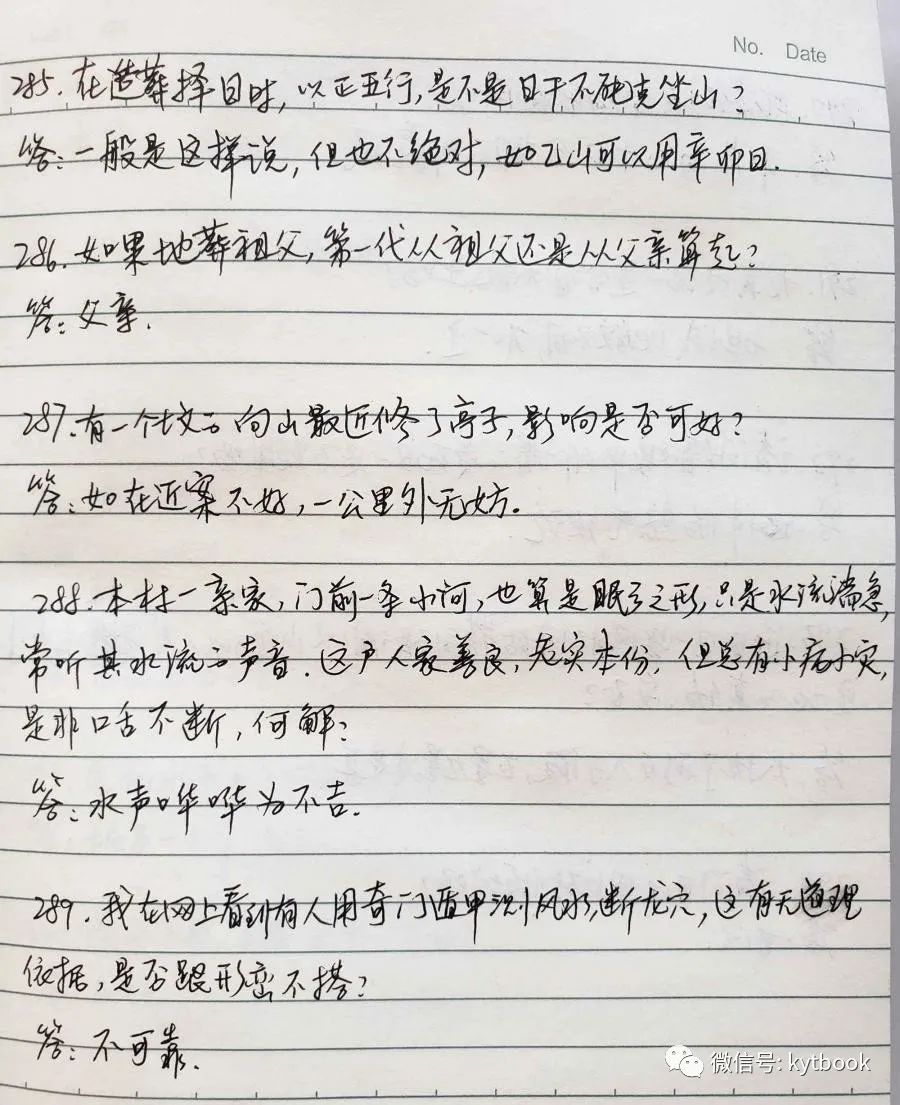 No. Date
285.在造葬择日时,以正五行,是不是日干不能克坐山?
答:一般是这样说,但也不绝对,如乙山可以用辛卯日.
286.如果地葬祖父,第一代从祖父还是从父亲算起?
答:父亲.
287.有一个坟的向山最近修了亭子,影响是否可好?
答:如在近案不好,一公里外无妨.
288.本村一亲家,门前一条小河,也算是眠弓之形,只是水流湍急,
常听其水流的声音.这户人家善良,老实本份,但总有小病小灾,
是非口舌不断,何解?
答:水声哗哗为不吉.
289.我在网上看到有人用奇门遁甲识别风水,断龙穴,这有无道理
依据,是否跟形峦不搭?
答:不可靠.
微信号: kytbook